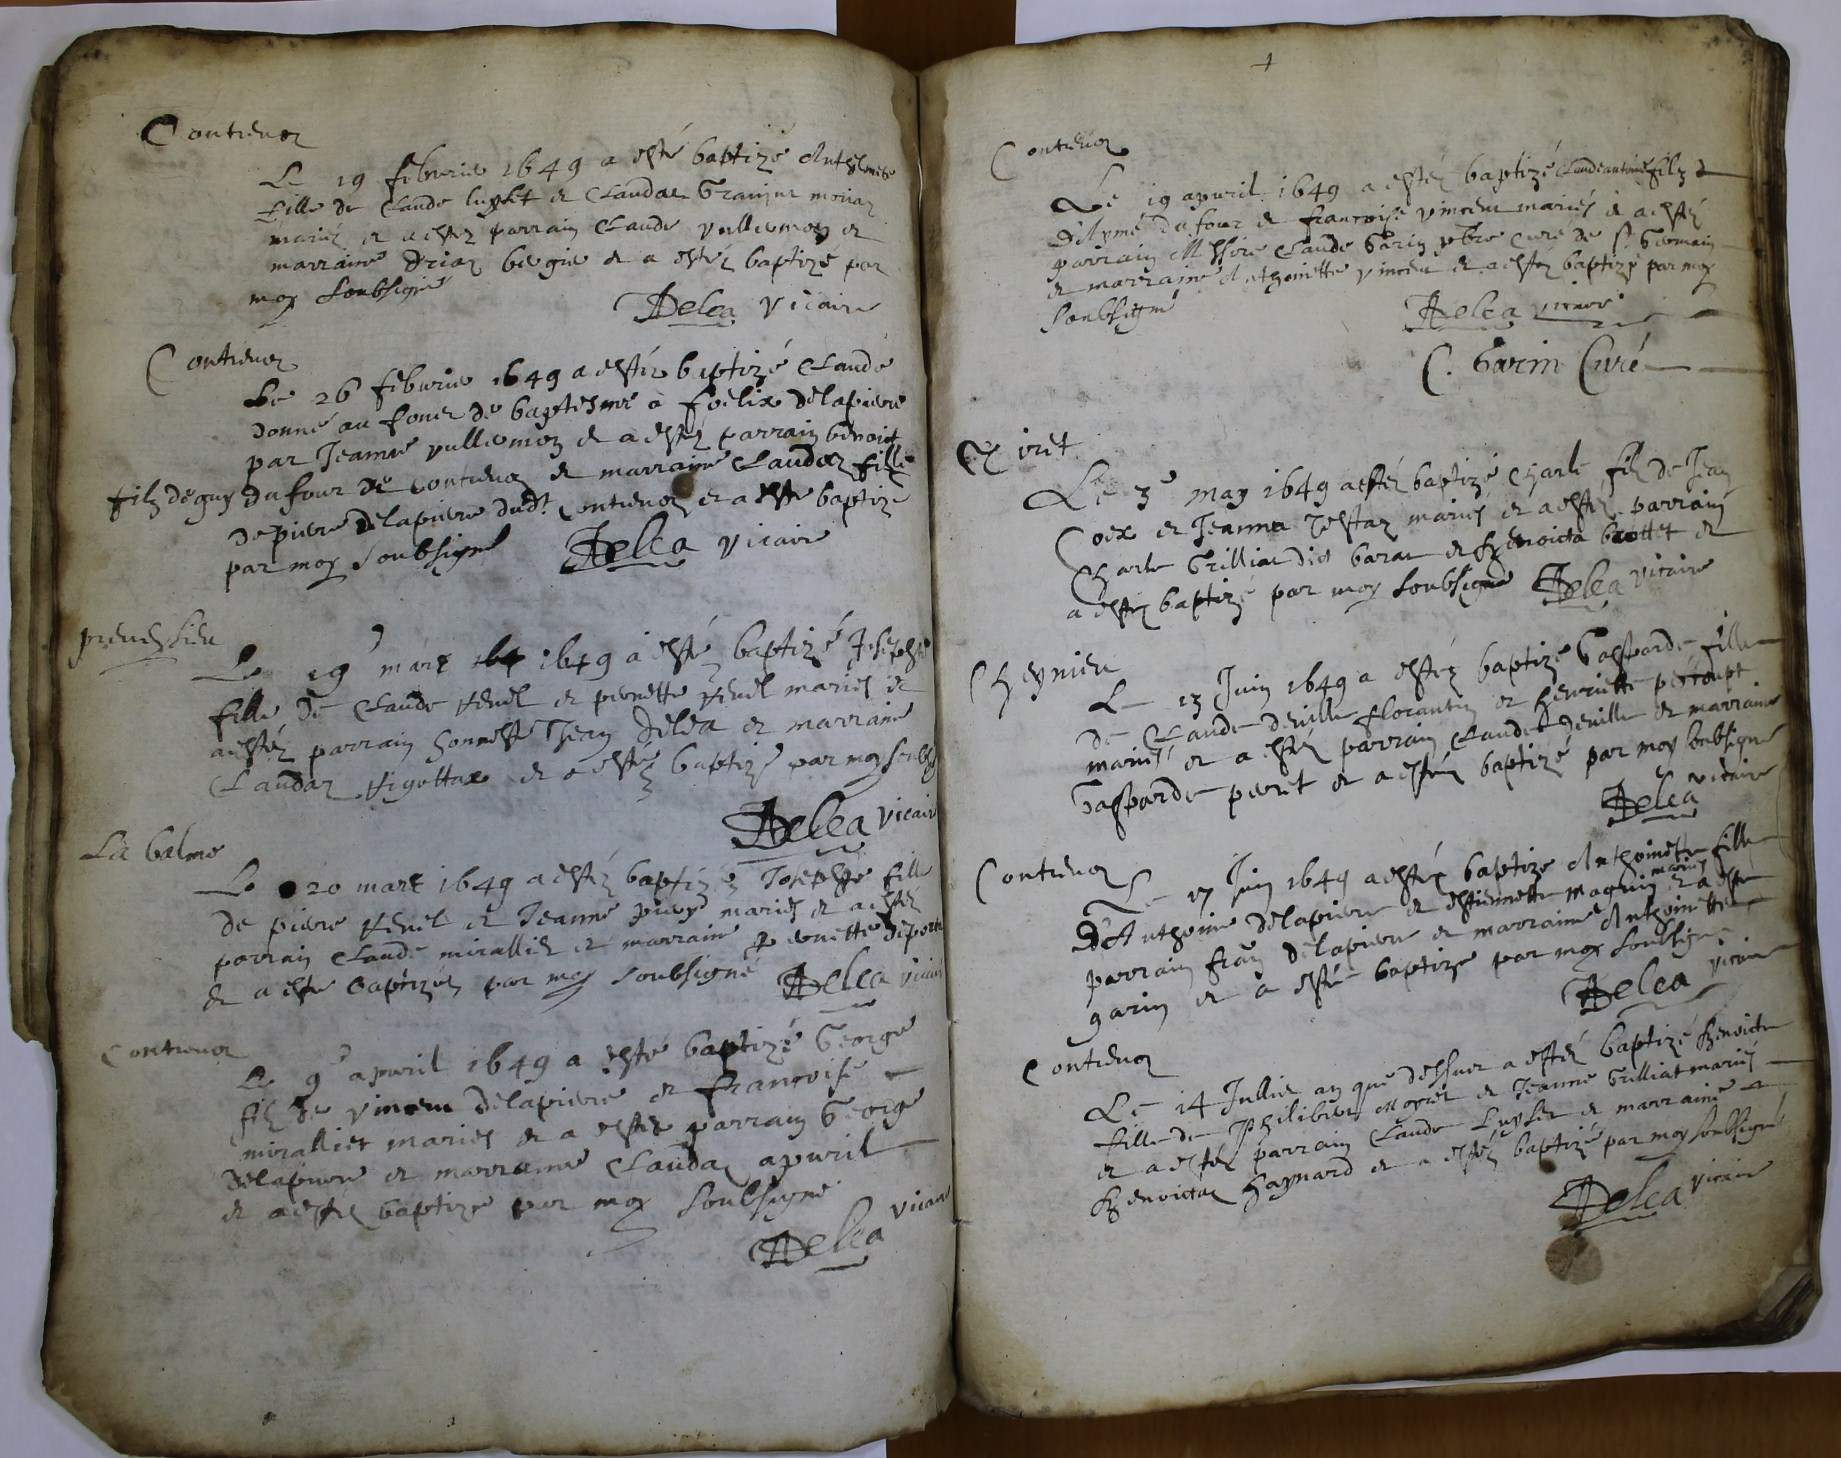 Contrevoz
Le 19 febvrier 1649 a esté baptizé Anthelmete
fille de Claude luyset et Claudaz
mariez et a estez parrain Claude vullermoz et
marraine et a estéz baptizé par
moy soubsigné
Delea vicaire
Contrevoz
Le 26 febvrier 1649 a estéz baptizé Claude
donné au fonez de baptesme à foelix delapierre
par Jeanne vullermoz et a estéz parrain benoict
filz de guy dufour de Contrevoz et marraine Claudaz fille
de pierre delapierre dudt Contrevoz et a esté baptizé
par moy soubsigné Delea vicaire
premessieu
Le 19e mars 1649 a esté baptizé Josephte
fille de Claude et pernette mariés et
a estéz parrain honneste Jean Delea et marraine
Claudaz et a estéz baptizé par moy soubs
Delea vicaire
La balme
Le 20 mars 1649 a estéz baptizéz Josephte fille
de pierre et Jeanne mariés et a estéz
parrain Claude mirallier et marraine pernette
et a esté baptizéz par moy soubsigné Delea vicaire
Contrevoz
Le 9e apvril 1649 a esté baptizé George
filz de vincent delapierre et francoise
mirallier mariés et a estez parrain George
delapierre et marraine Claudaz apvril
et a estéz baptizé par moy soubsigné
Delea vicaire
4
Contrevoz
Le 19 apvril 1649 a estéz baptizé Claude antoine filz d
dufour et francoise vincent mariés et a estéz
parrain Messire Claude Garin pbre curé de St Germain
et marraine Anthoinette vincent et a estez baptizé par moy
soubsigné
Delea vicaire
C. Garin Curé
Le 3e may 1649 a estéz baptizé Charle filz de Jean
Coex et Jeanne mariés et a estéz parrain
Charle Grilliat dict et benoicta et
a estéz baptizé par moy soubsigné Delea vicaire
Cheynieu
Le 13 Juin 1649 a estéz baptizé Gasparde fille
de Claude deville florantin et henriette
mariés et a estéz parrain Claude deville et marraine
Gasparde peret et a estéz baptizé par moy soubsigné
Delea vicaire
Contrevoz
Le 17 Juin 1649 a estéz baptizé Anthoinette fille
d'Anthoine delapierre et estiennette magnin mariés et a esté
parrain delapierre et marraine Anthoinette
garin et a esté baptizé par moy soubsigné
Delea vicaire
Contrevoz
Le 14 Jullie an que dessus a estéz baptizé benoicte
fille de philibert et Jeanne Grilliat mariés
et a estéz parrain Claude luyset et marraine
benoictaz haynard et a estéz baptizé par moy soubsigné
Delea vicaire